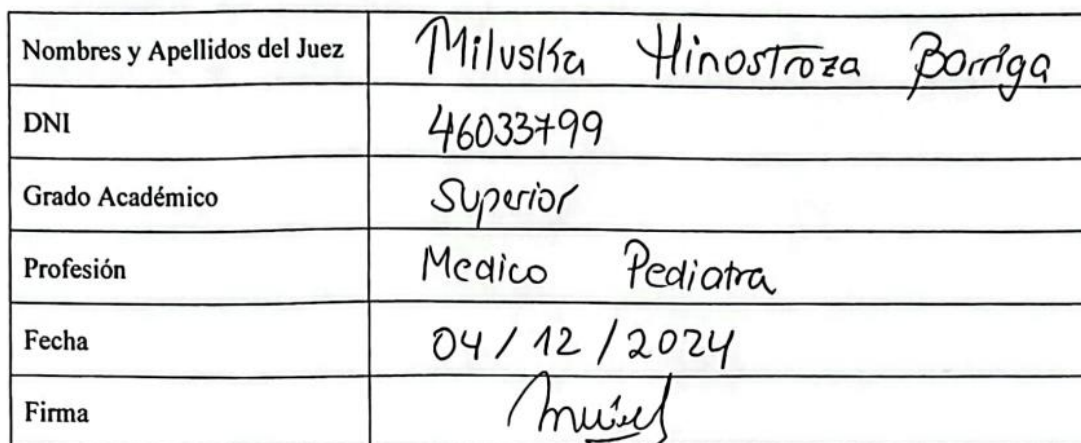 Nombres y Apellidos del Juez Miluska Hinostroza Borriga
DNI 46033799
Grado Académico Superior
Profesión Medico Pediatra
Fecha 04 / 12 / 2024
Firma